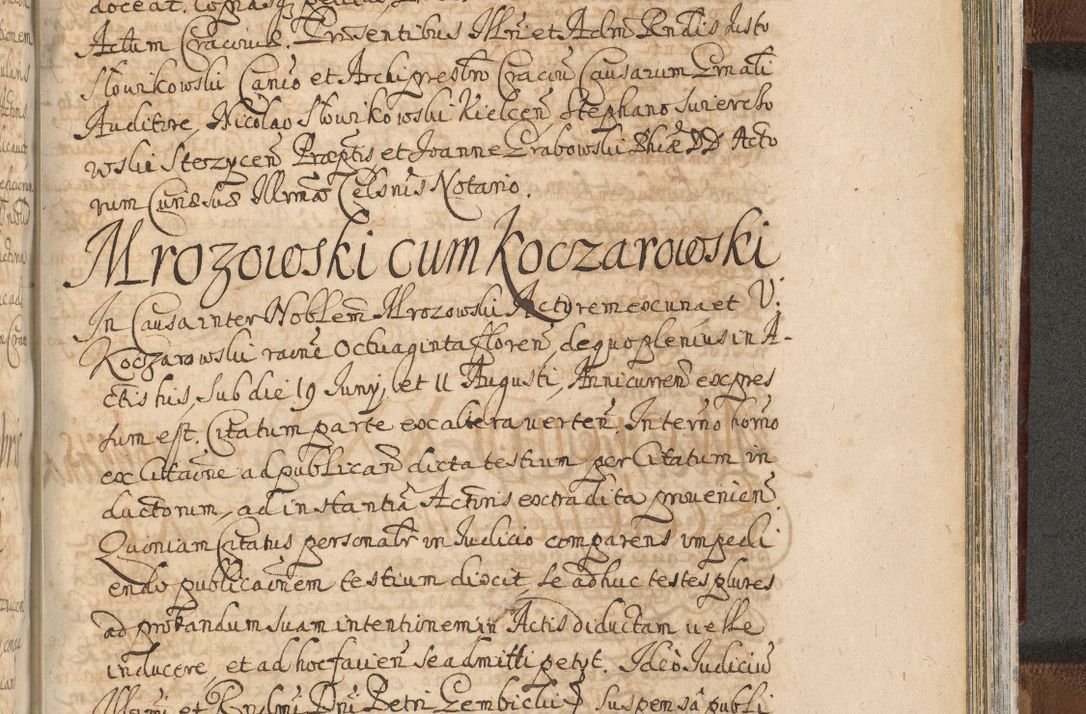 Actum Cracoviæ. Præsentibus Illri et Adm Rndis Justo
Słowikowski Canco et Archipresbro Cracovn Causarum Grnali
Auditore, Nicolao Słowikowski Kielcen, Stephano Suiercho
wski Stezycen Præptis et Joanne Grabowski Phiæ DD Acto
rum Curiæ suæ Illrmæ Celsnis Notario.
Mrozowski cum Koczarowski
In Causa inter Noblem Mrozowski Actorem ex una et V.
Koczarowski raone Octuaginta floren de quo plenius in A-
ctis huis, sub die 19 Juny, et 11 Augusti, Anni curren expres
sum est. Citatum parte ex altera verten. In termo horno
ex Cittaone ad publican dicta testium per Citatum in
ductorum, ad instantia Actoris extradita provenien
Quoniam Citatus personalr in Judicio comparens impedi
endo publicaonem testium dixit, se adhuc testes plures
ad probandum suam intentionem in Actis diductam velle
inducere, et ad hoc favien se admitti petyt. Ideo Judiciu
Illrmi et Rndmi Dni Petri Gembicki suspensa publi